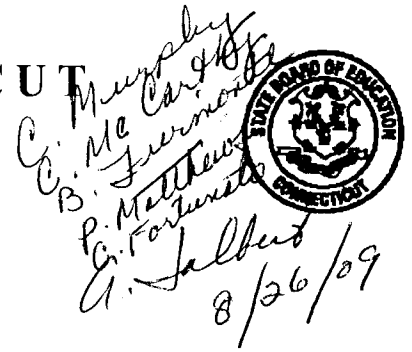 CUT
Murphy
C. McCarthy
B.
P. Matthews
G. Fortunato
A. Talbert
8/26/09
STATE BOARD OF EDUCATION
CONNECTICUT